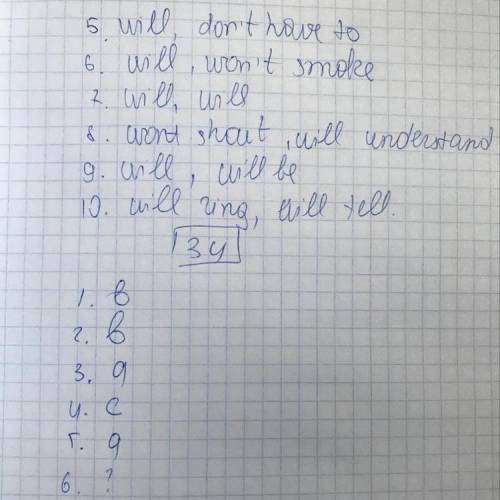 5. will, don't have to
6. will, won't smoke
7. will, will
8. wont shout, will understand
9. will, will be
10. will ring, will tell.
34
1. b
2. b
3. a
4. c
5. a
6. ?